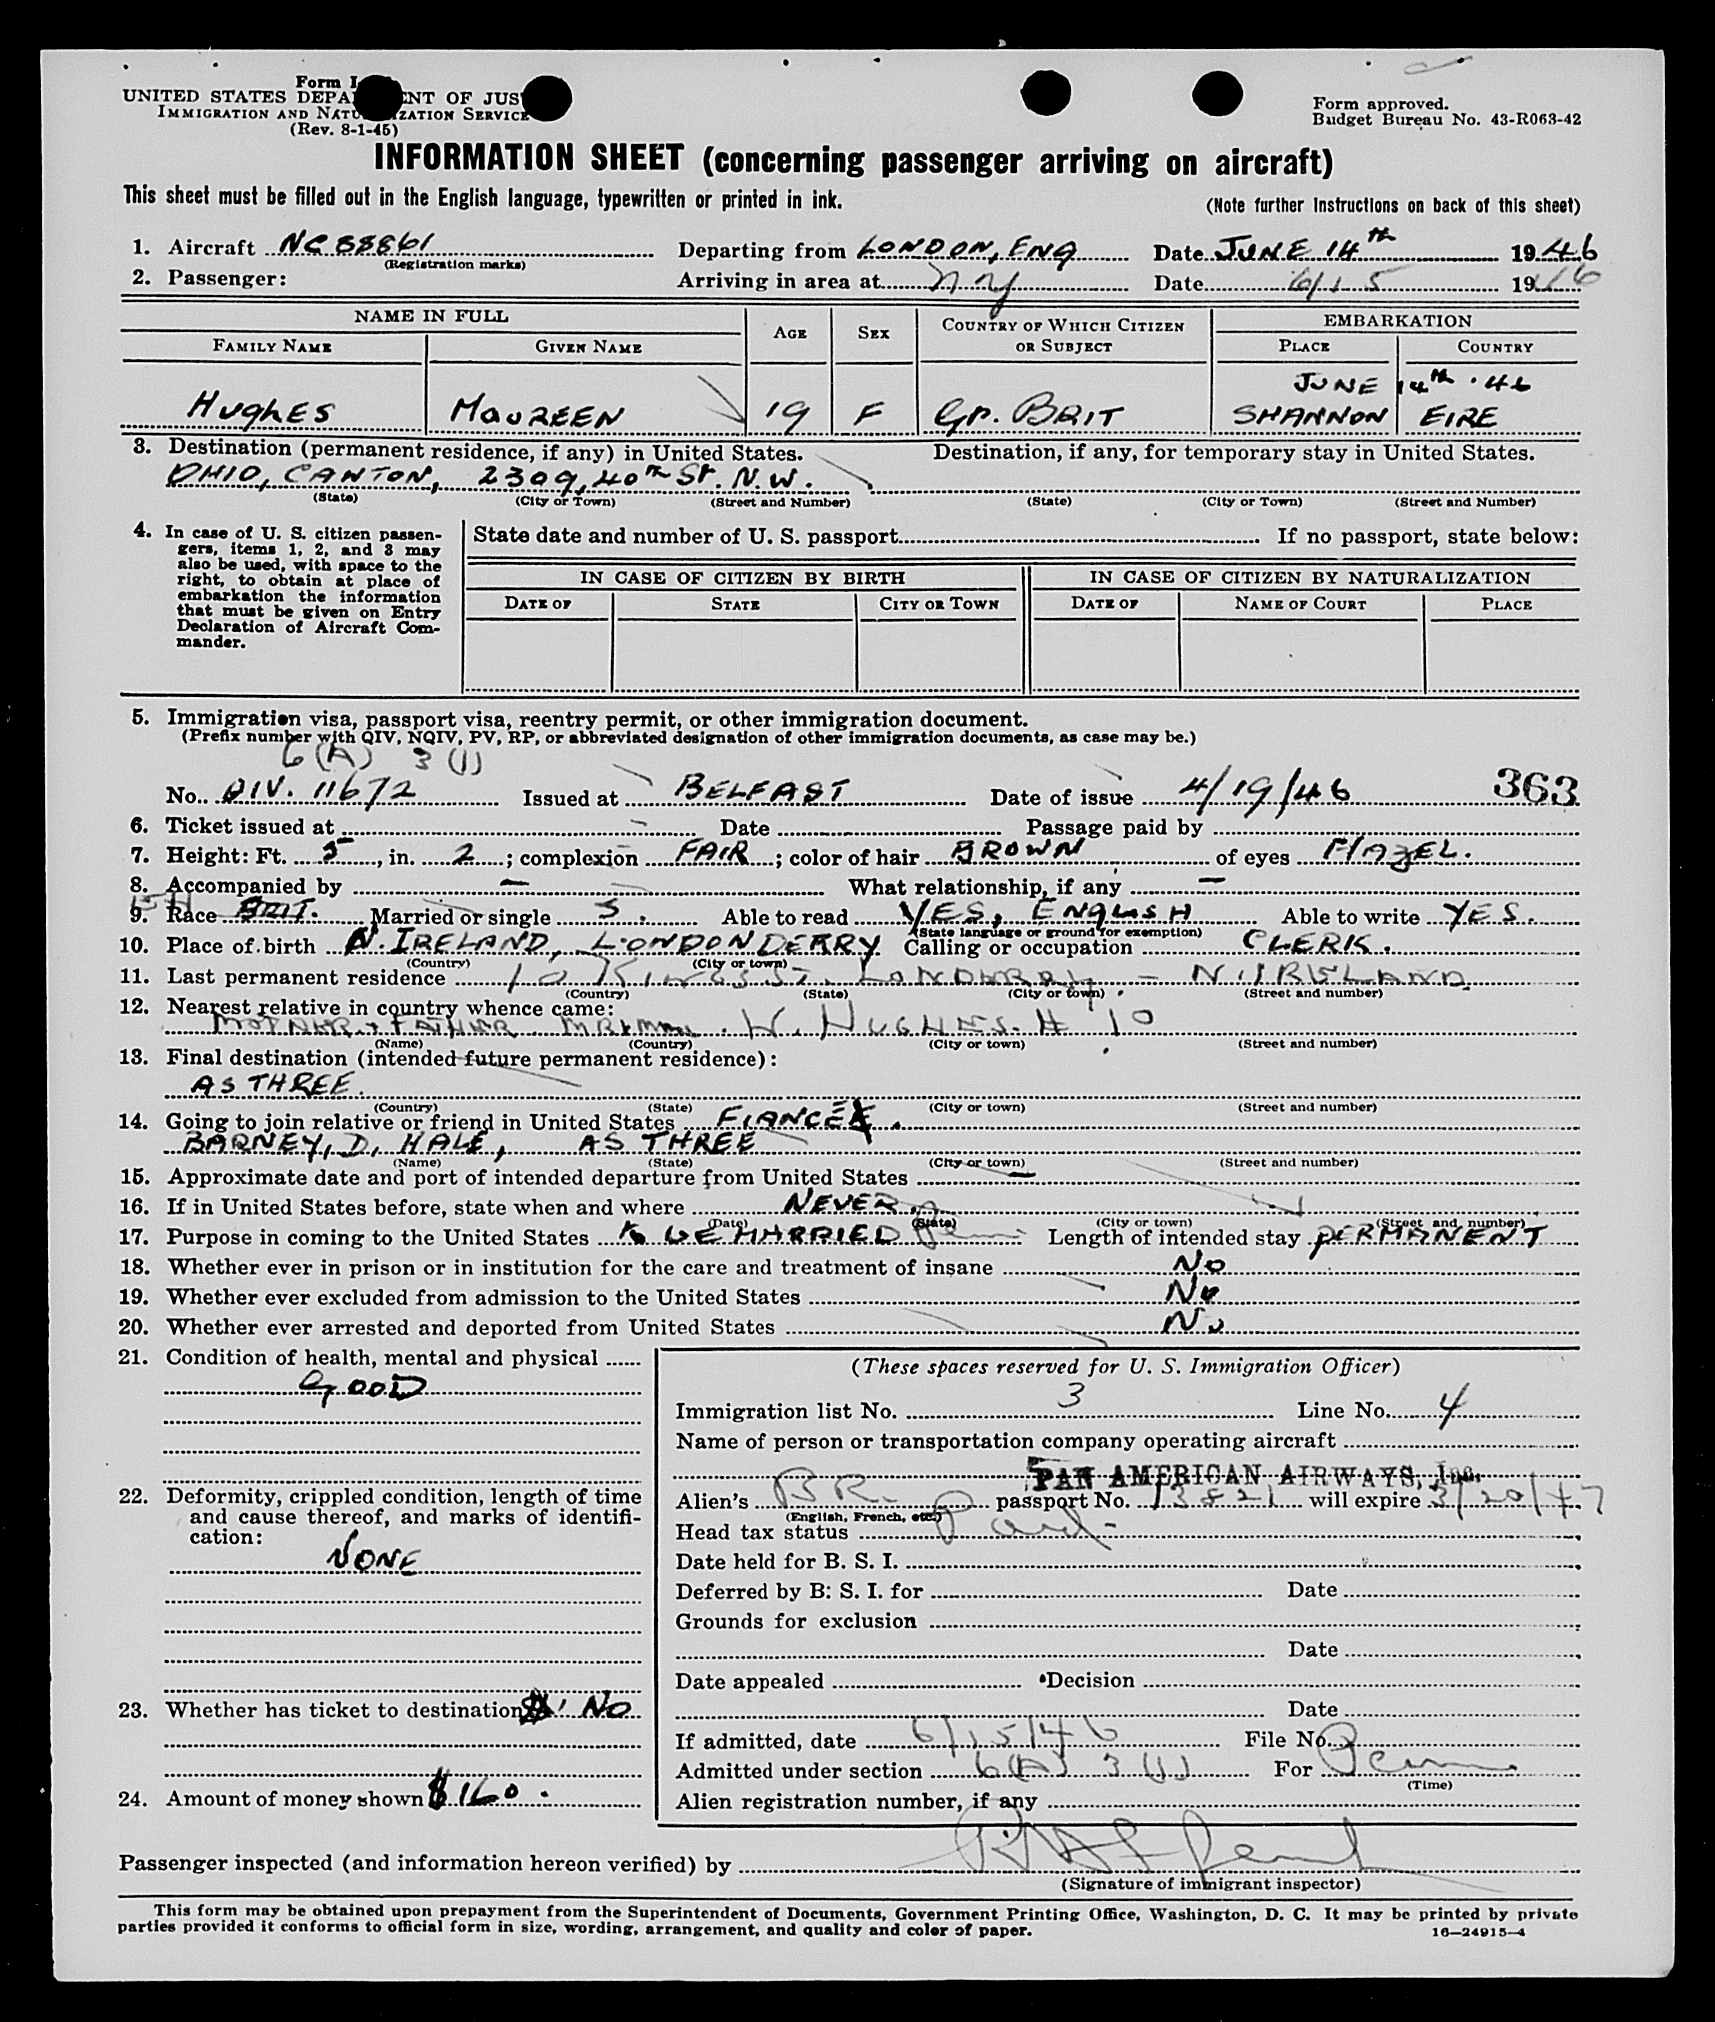 Form I
UNITED STATES DEPA ENT OF JUS
IMMIGRATION AND NATU IZATION SERVICE
(Rev. 8-1-45)
Form approved.
Budget Bureau No. 43-R063-42
INFORMATION SHEET (concerning passenger arriving on aircraft)
This sheet must be filled out in the English language, typewritten or printed in ink.
(Note further instructions on back of this sheet)
1. Aircraft NC 88861 Departing from LONDON, ENG Date JUNE 14th 1946
(Registration marks)
2. Passenger: Arriving in area at NY Date 6/15 1946
NAME IN FULL AGE SEX COUNTRY OF WHICH CITIZEN OR SUBJECT EMBARKATION
FAMILY NAME GIVEN NAME PLACE COUNTRY
JUNE 14th . 46
HUGHES MAUREEN 19 F GP. BRIT SHANNON EIRE
3. Destination (permanent residence, if any) in United States. Destination, if any, for temporary stay in United States.
OHIO, CANTON, 2309, 40TH ST. N.W.
(State) (City or Town) (Street and Number) (State) (City or Town) (Street and Number)
4. In case of U. S. citizen passengers, items 1, 2, and 3 may also be used, with space to the right, to obtain at place of embarkation the information that must be given on Entry Declaration of Aircraft Commander.
State date and number of U. S. passport If no passport, state below:
IN CASE OF CITIZEN BY BIRTH IN CASE OF CITIZEN BY NATURALIZATION
DATE OF STATE CITY OR TOWN DATE OF NAME OF COURT PLACE
5. Immigration visa, passport visa, reentry permit, or other immigration document.
(Prefix number with QIV, NQIV, PV, RP, or abbreviated designation of other immigration documents, as case may be.)
6(A) 3(1)
No. QIV. 11672 Issued at BELFAST Date of issue 4/19/46 363
6. Ticket issued at Date Passage paid by
7. Height: Ft. 5, in. 2; complexion FAIR; color of hair BROWN of eyes HAZEL.
8. Accompanied by — What relationship, if any —
9. Race BRIT. Married or single S. Able to read YES, ENGLISH Able to write YES.
(State language or ground for exemption)
10. Place of birth N. IRELAND, LONDONDERRY Calling or occupation CLERK.
(Country) (City or town)
11. Last permanent residence 10 ST. - N. IRELAND
(Country) (State) (City or town) (Street and number)
12. Nearest relative in country whence came:
MOTHER + FATHER W. HUGHES. # 10
(Name) (Country) (City or town) (Street and number)
13. Final destination (intended future permanent residence):
AS THREE.
(Country) (State) (City or town) (Street and number)
14. Going to join relative or friend in United States FIANCÉ.
BARNEY, D. HALE, AS THREE
(Name) (State) (City or town) (Street and number)
15. Approximate date and port of intended departure from United States —
16. If in United States before, state when and where NEVER.
(Date) (State) (City or town) (Street and number)
17. Purpose in coming to the United States to BE MARRIED Length of intended stay PERMANENT
18. Whether ever in prison or in institution for the care and treatment of insane No
19. Whether ever excluded from admission to the United States No
20. Whether ever arrested and deported from United States No
21. Condition of health, mental and physical
GOOD
22. Deformity, crippled condition, length of time and cause thereof, and marks of identification:
NONE
23. Whether has ticket to destination NO
24. Amount of money shown $160.
(These spaces reserved for U. S. Immigration Officer)
Immigration list No. 3 Line No. 4
Name of person or transportation company operating aircraft
PAN AMERICAN AIRWAYS, Inc.
Alien's BR. passport No. 13821 will expire 3/20/47
(English, French, etc.)
Head tax status Paid
Date held for B. S. I.
Deferred by B. S. I. for Date
Grounds for exclusion
Date
Date appealed Decision
Date
If admitted, date 6/15/46 File No.
Admitted under section 6(A) 3(1) For Perm
(Time)
Alien registration number, if any
Passenger inspected (and information hereon verified) by
(Signature of immigrant inspector)
This form may be obtained upon prepayment from the Superintendent of Documents, Government Printing Office, Washington, D. C. It may be printed by private
parties provided it conforms to official form in size, wording, arrangement, and quality and color of paper.
16—24915-4